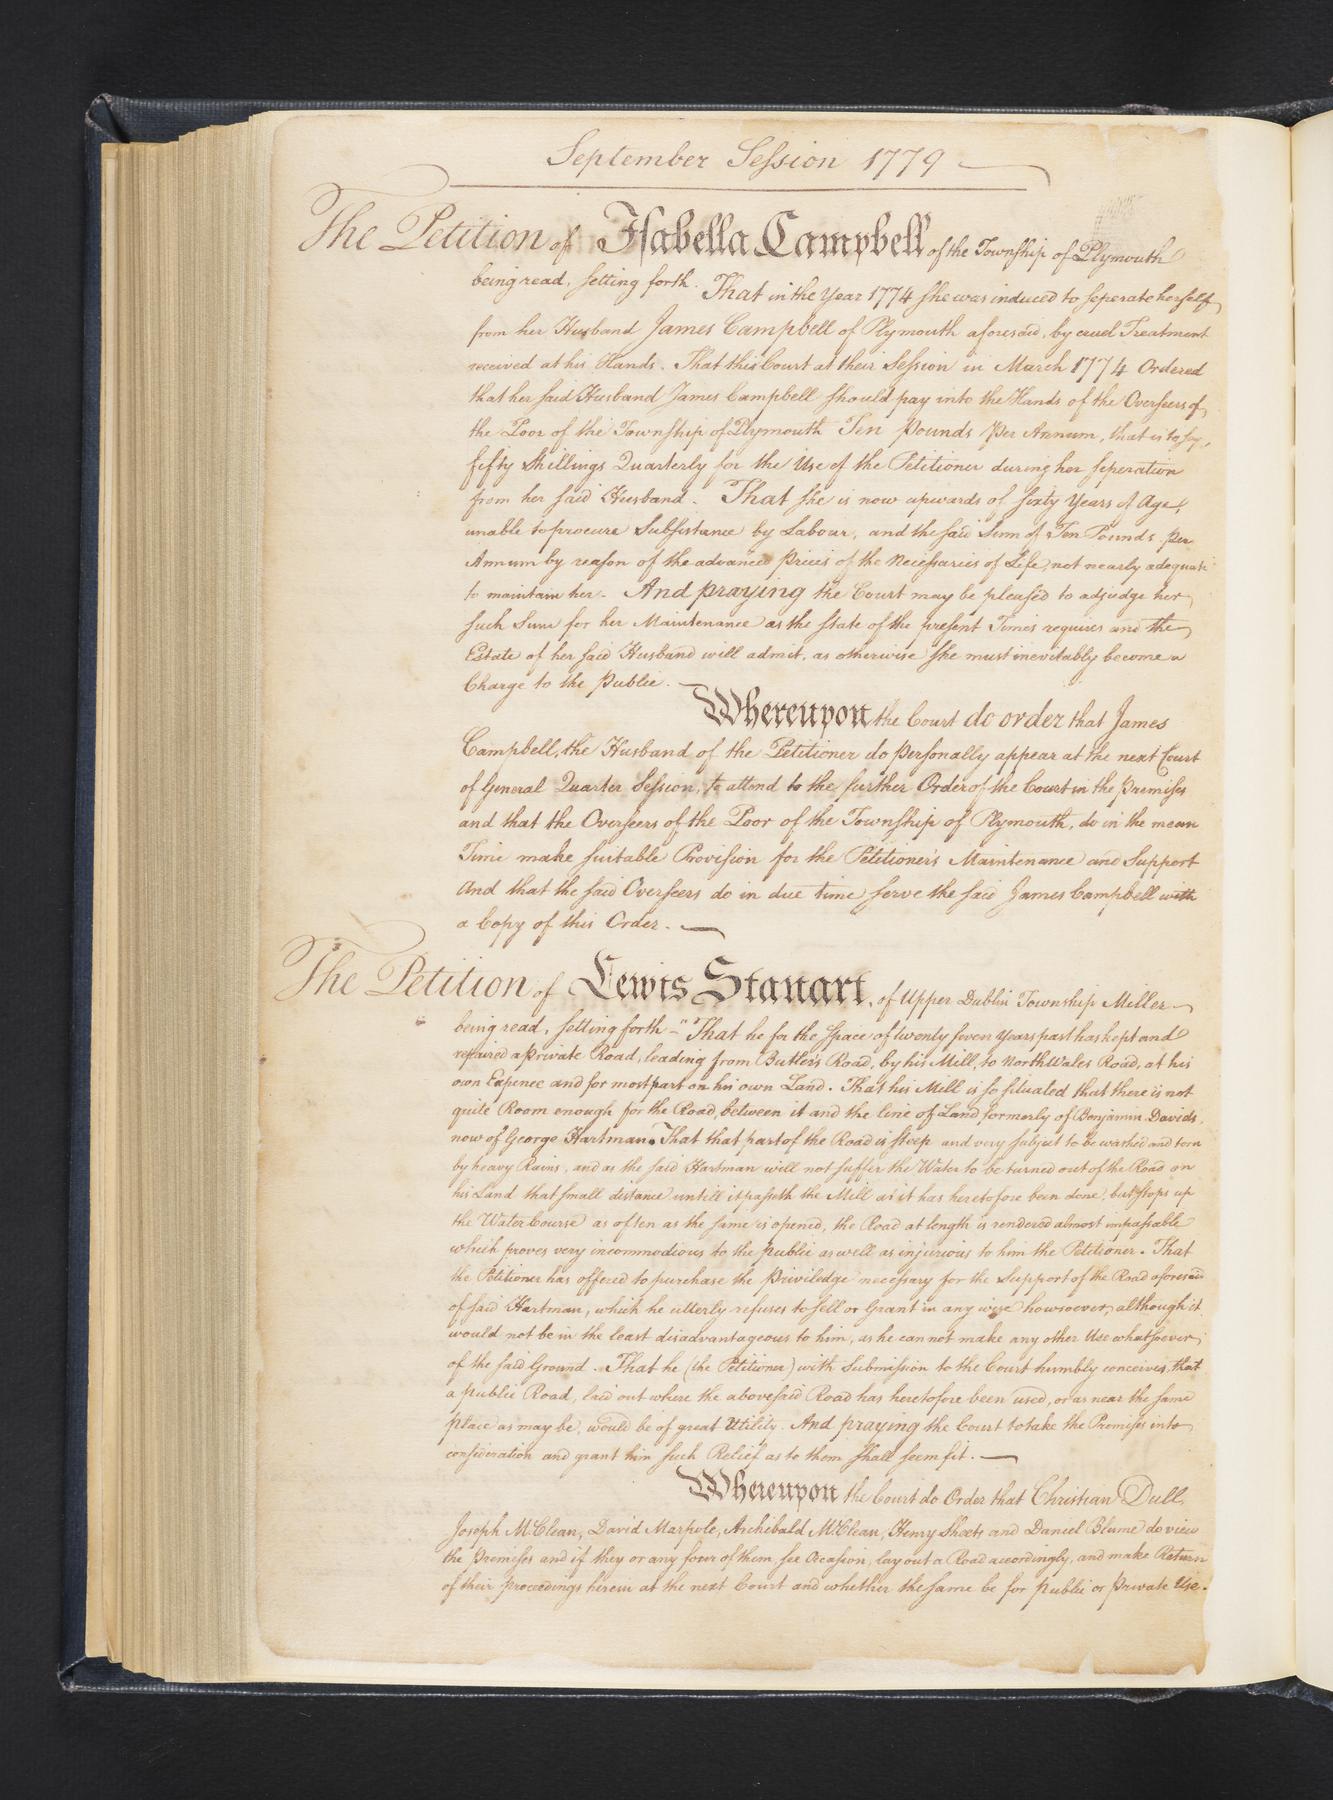 September Session 1779
The Petition of Isabella Campbell of the Township of Plymouth
being read, setting forth. That in the Year 1774 she was induced to seperate herself
from her Husband James Campbell of Plymouth aforesaid, by cruel Treatment
received at his Hands. That this Court at their Session in March 1774 Ordered
that her said Husband James Campbell should pay into the Hands of the Overseers of
the Poor of the Township of Plymouth Ten Pounds Per Annum, that is to say,
fifty Shillings Quarterly for the Use of the Petitioner during her seperation
from her said Husband. That she is now upwards of sixty Years of Age,
unable to procure Subsistance by Labour, and the said Sum of Ten Pounds per
Annum by reason of the advanced Prices of the Necessaries of Life, not nearly adequate
to maintain her. And praying the Court may be pleased to adjudge her
such Sum for her Maintenance as the state of the present Times requires and the
Estate of her said Husband will admit, as otherwise she must inevitably become a
Charge to the Public.
Whereupon the Court do order that James
Campbell, the Husband of the Petitioner do personally appear at the next Court
of General Quarter Session, to attend to the further Order of the Court in the Premises
and that the Overseers of the Poor of the Township of Plymouth, do in the mean
Time make suitable Provision for the Petitioner's Maintenance and Support
And that the said Overseers do in due time serve the said James Campbell with
a Copy of this Order.
The Petition of Lewis Stanart, of Upper Dublin Township Miller
being read, setting forth - "That he for the Space of twenty seven years past has kept and
repaired a private Road, leading from Butler's Road, by his Mill, to North Wales Road, at his
own Expence and for most part on his own Land. That his Mill is so situated that there is not
quite Room enough for the Road, between it and the line of Land formerly of Benjamin Davids,
now of George Hartman. That that part of the Road is steep and very subject to be washed and torn
by heavy Rains, and as the said Hartman will not suffer the Water to be turned out of the Road on
his Land that small distance untill it passeth the Mill as it has heretofore been done, but stops up
the Water Course as often as the same is opened, the Road at length is rendered almost impassable
which proves very incommodious to the public as well as injurious to him the Petitioner. That
the Petitioner has offered to purchase the Priviledge necessary for the Support of the Road aforesaid
of said Hartman, which he utterly refuses to sell or Grant in any wise howsoever, although it
would not be in the least disadvantageous to him, as he can not make any other Use whatsoever
of the said Ground. That he (the Petitioner) with Submission to the Court humbly conceives, that
a public Road, laid out where the abovesaid Road has heretofore been used, or as near the same
place as may be, would be of great Utility. And praying the Court to take the Premises into
consideration and grant him such Relief as to them shall seem fit.
Whereupon the Court do Order that Christian Dull,
Joseph McClean, David Marpole, Archibald McClean, Henry Sheets and Daniel Blume do view
the Premises and if they or any four of them, see Occasion, lay out a Road accordingly, and make Return
of their proceedings herein at the next Court and whether the same be for public or private Use.